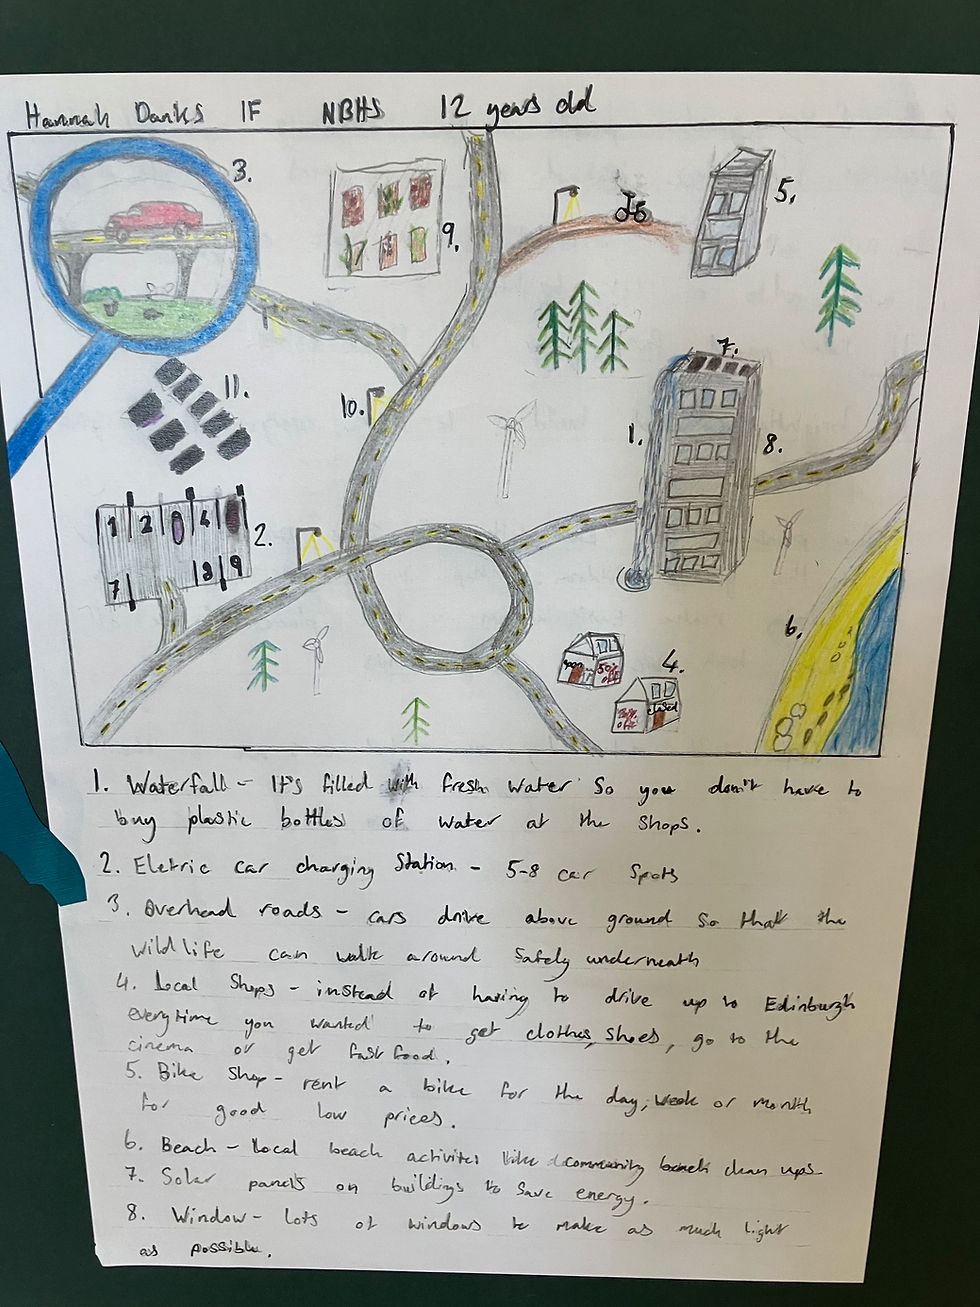 Hannah Danks 1F NBHS 12 years old
3.
9.
5.
7.
11.
10.
1.
8.
1 2 4
7 8 9
2.
6.
4.
50% off
closed
1. Waterfall - It's filled with fresh water so you don't have to
buy plastic bottles of water at the shops.
2. Eletric car charging Station - 5-8 car spots
3. Overhead roads - cars drive above ground so that the
wildlife can walk around safely underneath
4. Local Shops - instead of having to drive up to Edinburgh
everytime you wanted to get clothes, shoes, go to the
cinema or get fast food.
5. Bike Shop - rent a bike for the day, week or month
for good low prices.
6. Beach - local beach activites like community beach clean ups
7. Solar panels on buildings to save energy.
8. Window - lots of windows to make as much light
as possible.